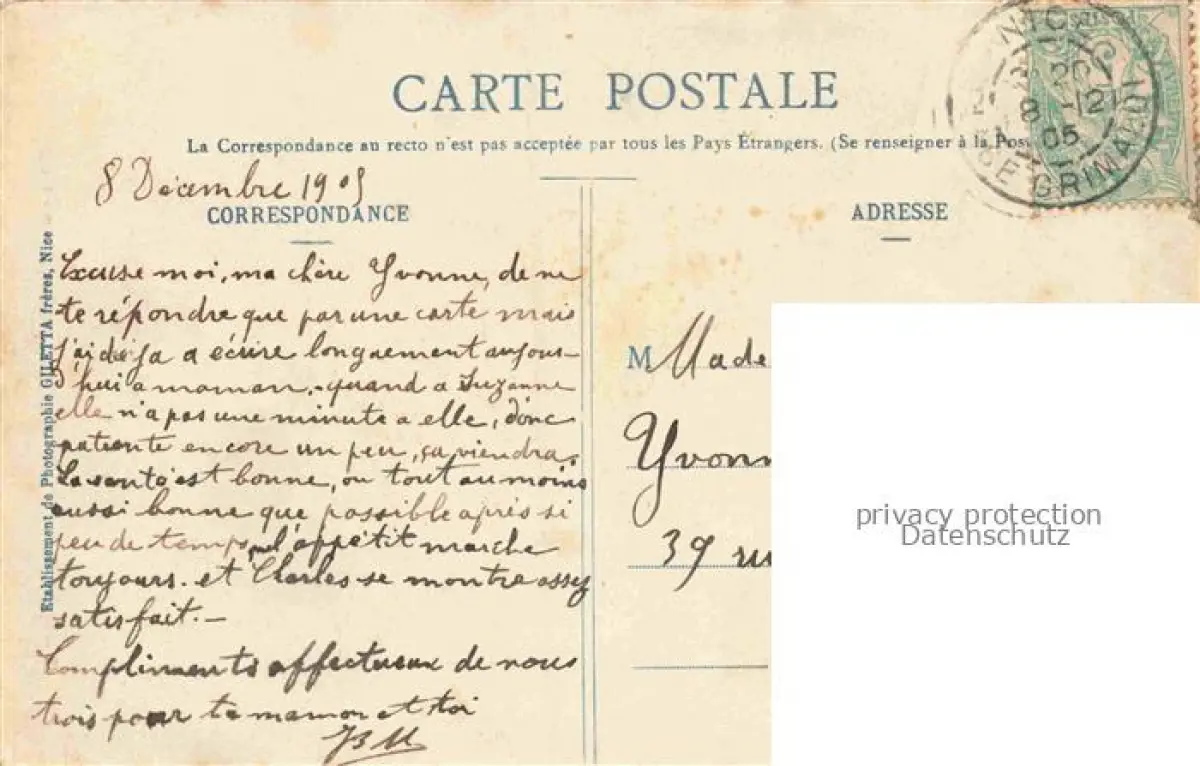 CARTE POSTALE
La Correspondance au recto n'est pas acceptée par tous les Pays Étrangers. (Se renseigner à la Pos
8 Décembre 1905
CORRESPONDANCE
Excuse moi, ma chère Yvonne, de ne
te répondre que par une carte mais
j'ai déja a écrire longuement aujour-
d'hui a maman. - quand a Suzanne
elle n'a pas une minute a elle, donc
patiente encore un peu, ça viendra.
La santé est bonne, ou tout au moins
aussi bonne que possible après si
peu de temps, l'appétit marche
toujours. et Charles se montre assez
satisfait. -
Compliments affectueux de nous
trois pour ta maman et toi
JBM
Etablissement de Photographie GILETTA frères, Nice
ADRESSE
M Made
Yvonn
39 ru
NICE
20
8 -12
05
PCE GRIMALDI
POSTES
privacy protection
Datenschutz